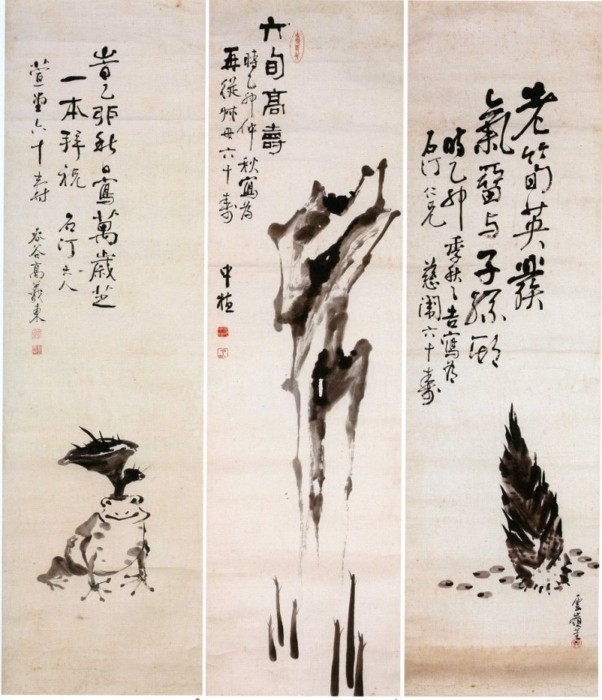 老筍英
氣留与子孫
時乙卯季秋之吉寫為
石汀仁兄
慈闈六十壽
雲嶺生
六旬高壽
時乙卯仲秋寫為
再從叔母六十壽
中植
乙卯秋日寫萬歲芝
一本拜祝 石汀大人
萱堂六十壽
谷高羲東